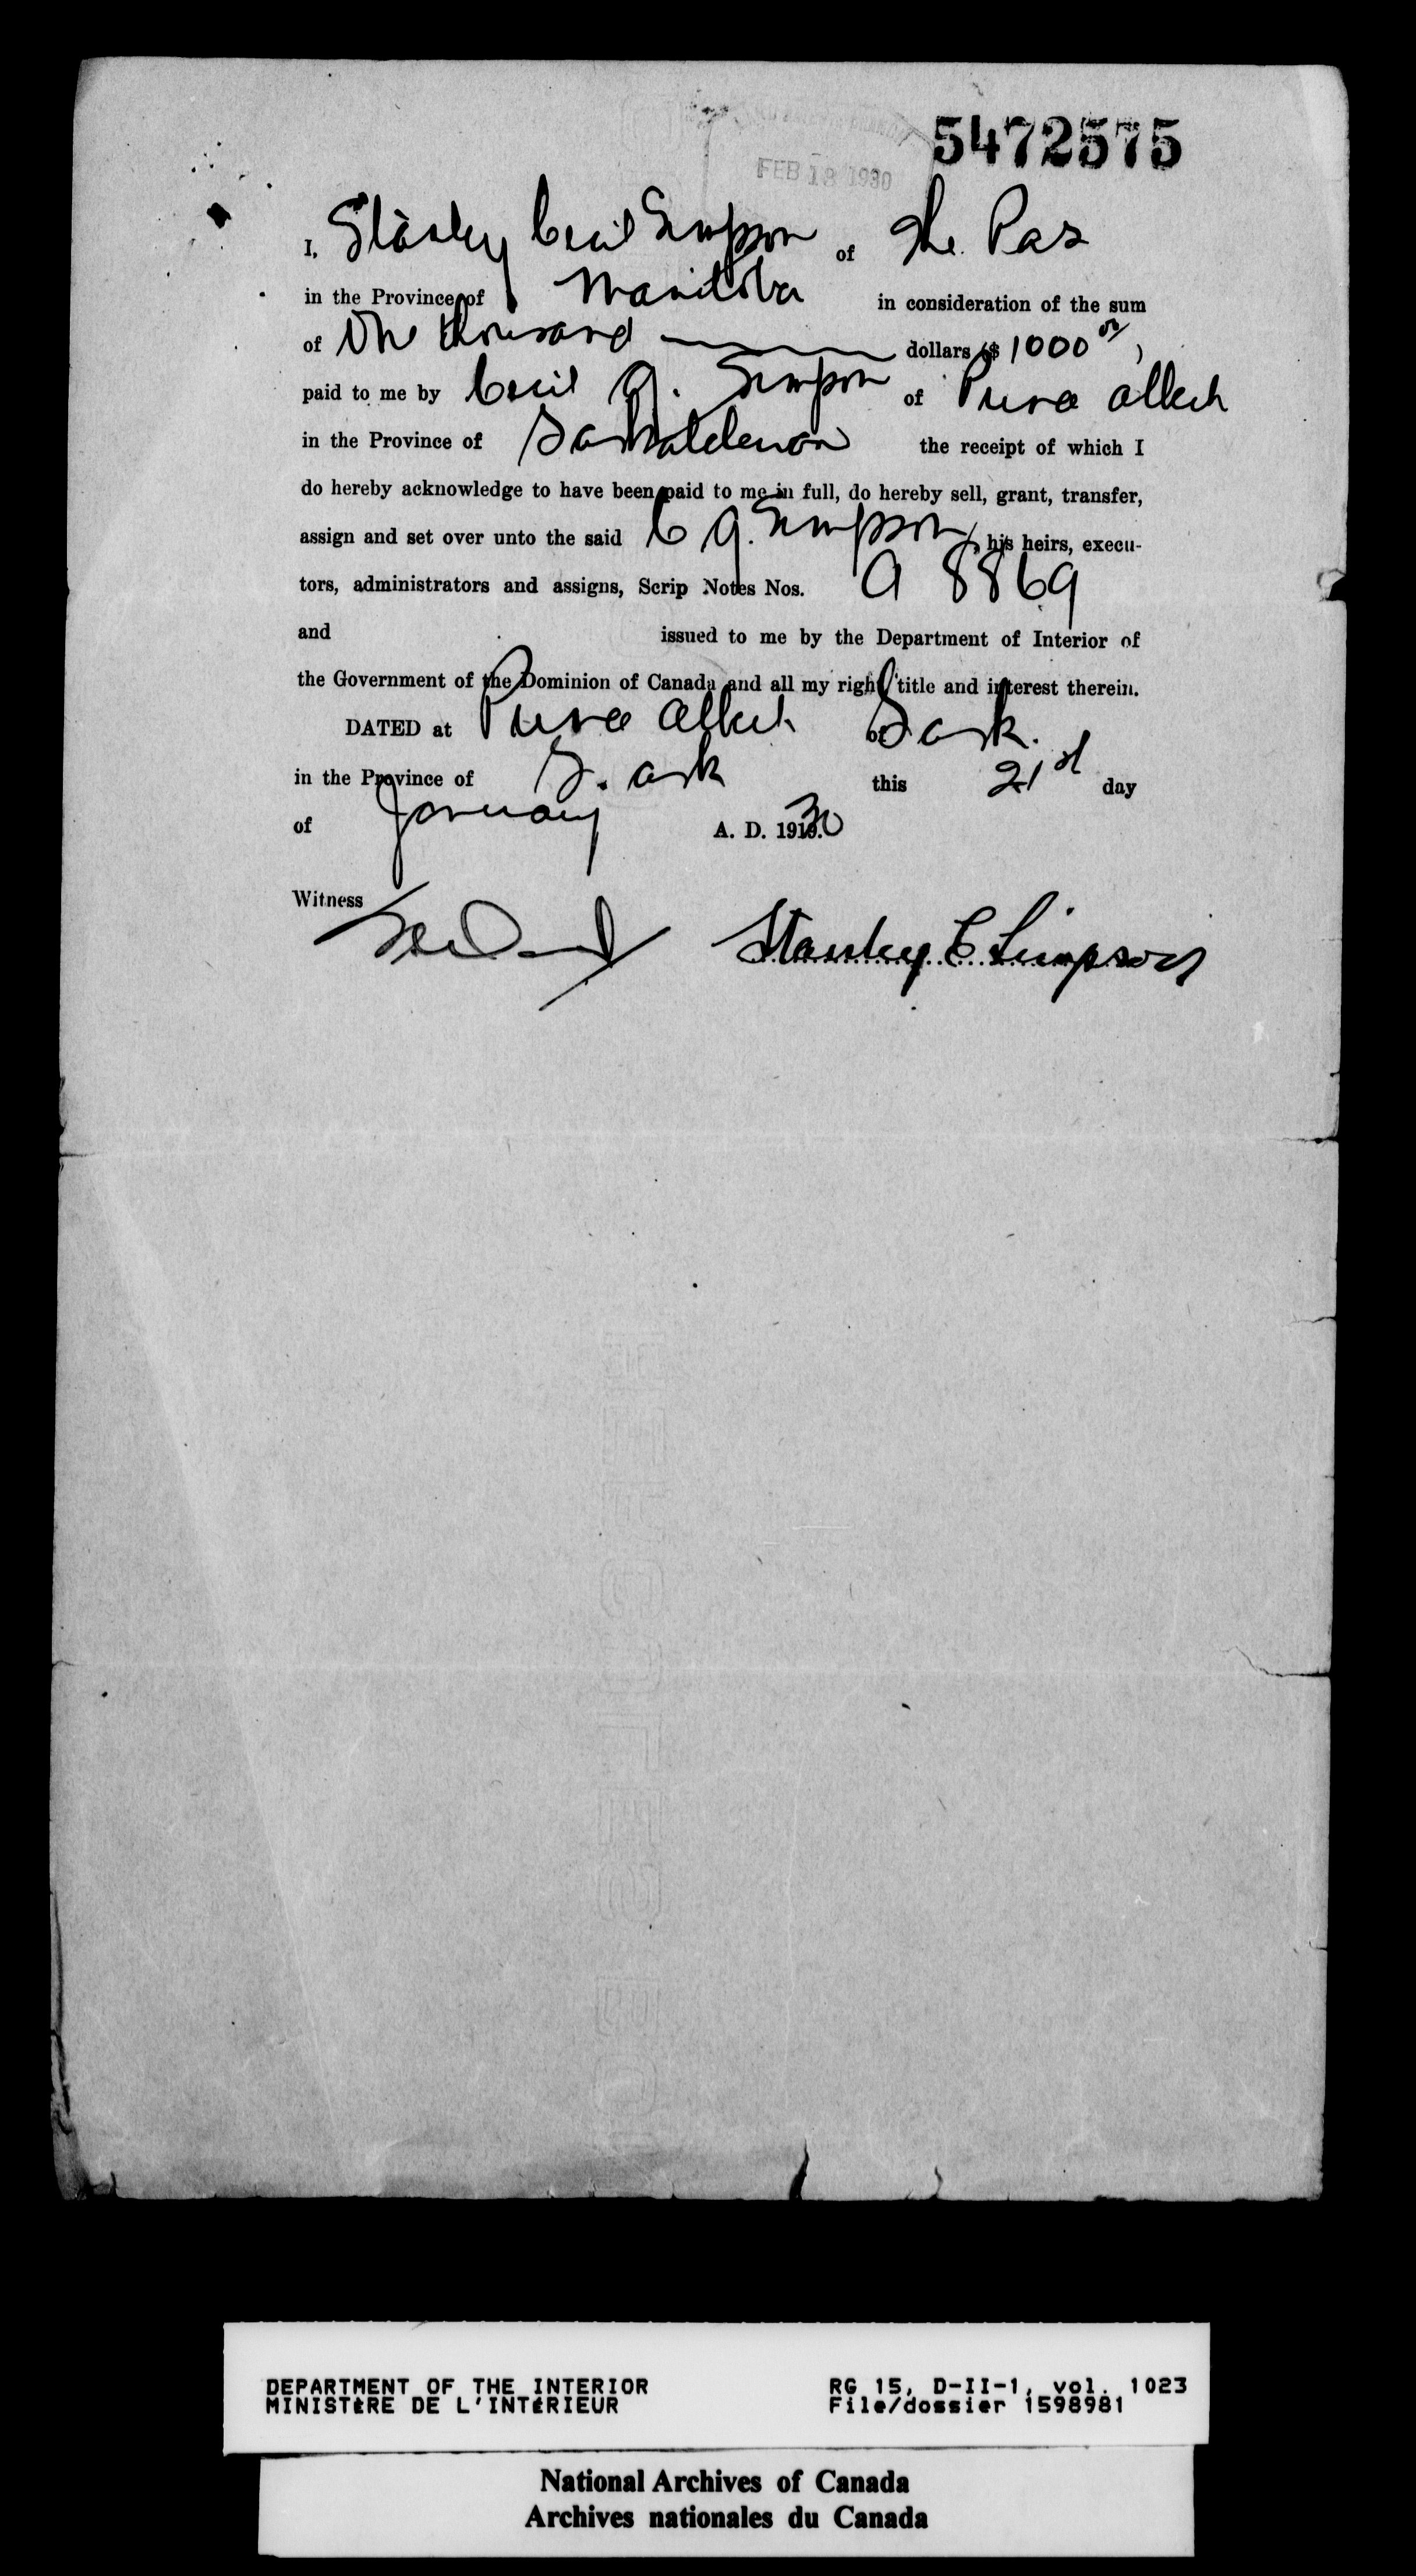 5472575
FEB 18 1930
I, Stanley Cecil Simpson of The Pas
in the Province of Manitoba in consideration of the sum
of One thousand dollars ($ 1000 00/ )
paid to me by Cecil A. Simpson of Prince Albert
in the Province of Saskatchewan the receipt of which I
do hereby acknowledge to have been paid to me in full, do hereby sell, grant, transfer,
assign and set over unto the said C A. Simpson, his heirs, execu-
tors, administrators and assigns, Scrip Notes Nos. A 8869
and issued to me by the Department of Interior of
the Government of the Dominion of Canada and all my right title and interest therein.
DATED at Prince Albert of Sask.
in the Province of Sask this 21st day
of January A. D. 1930
Witness
Stanley C Simpson
DEPARTMENT OF THE INTERIOR RG 15, D-II-1, vol. 1023
MINISTÈRE DE L'INTÉRIEUR File/dossier 1598981
National Archives of Canada
Archives nationales du Canada